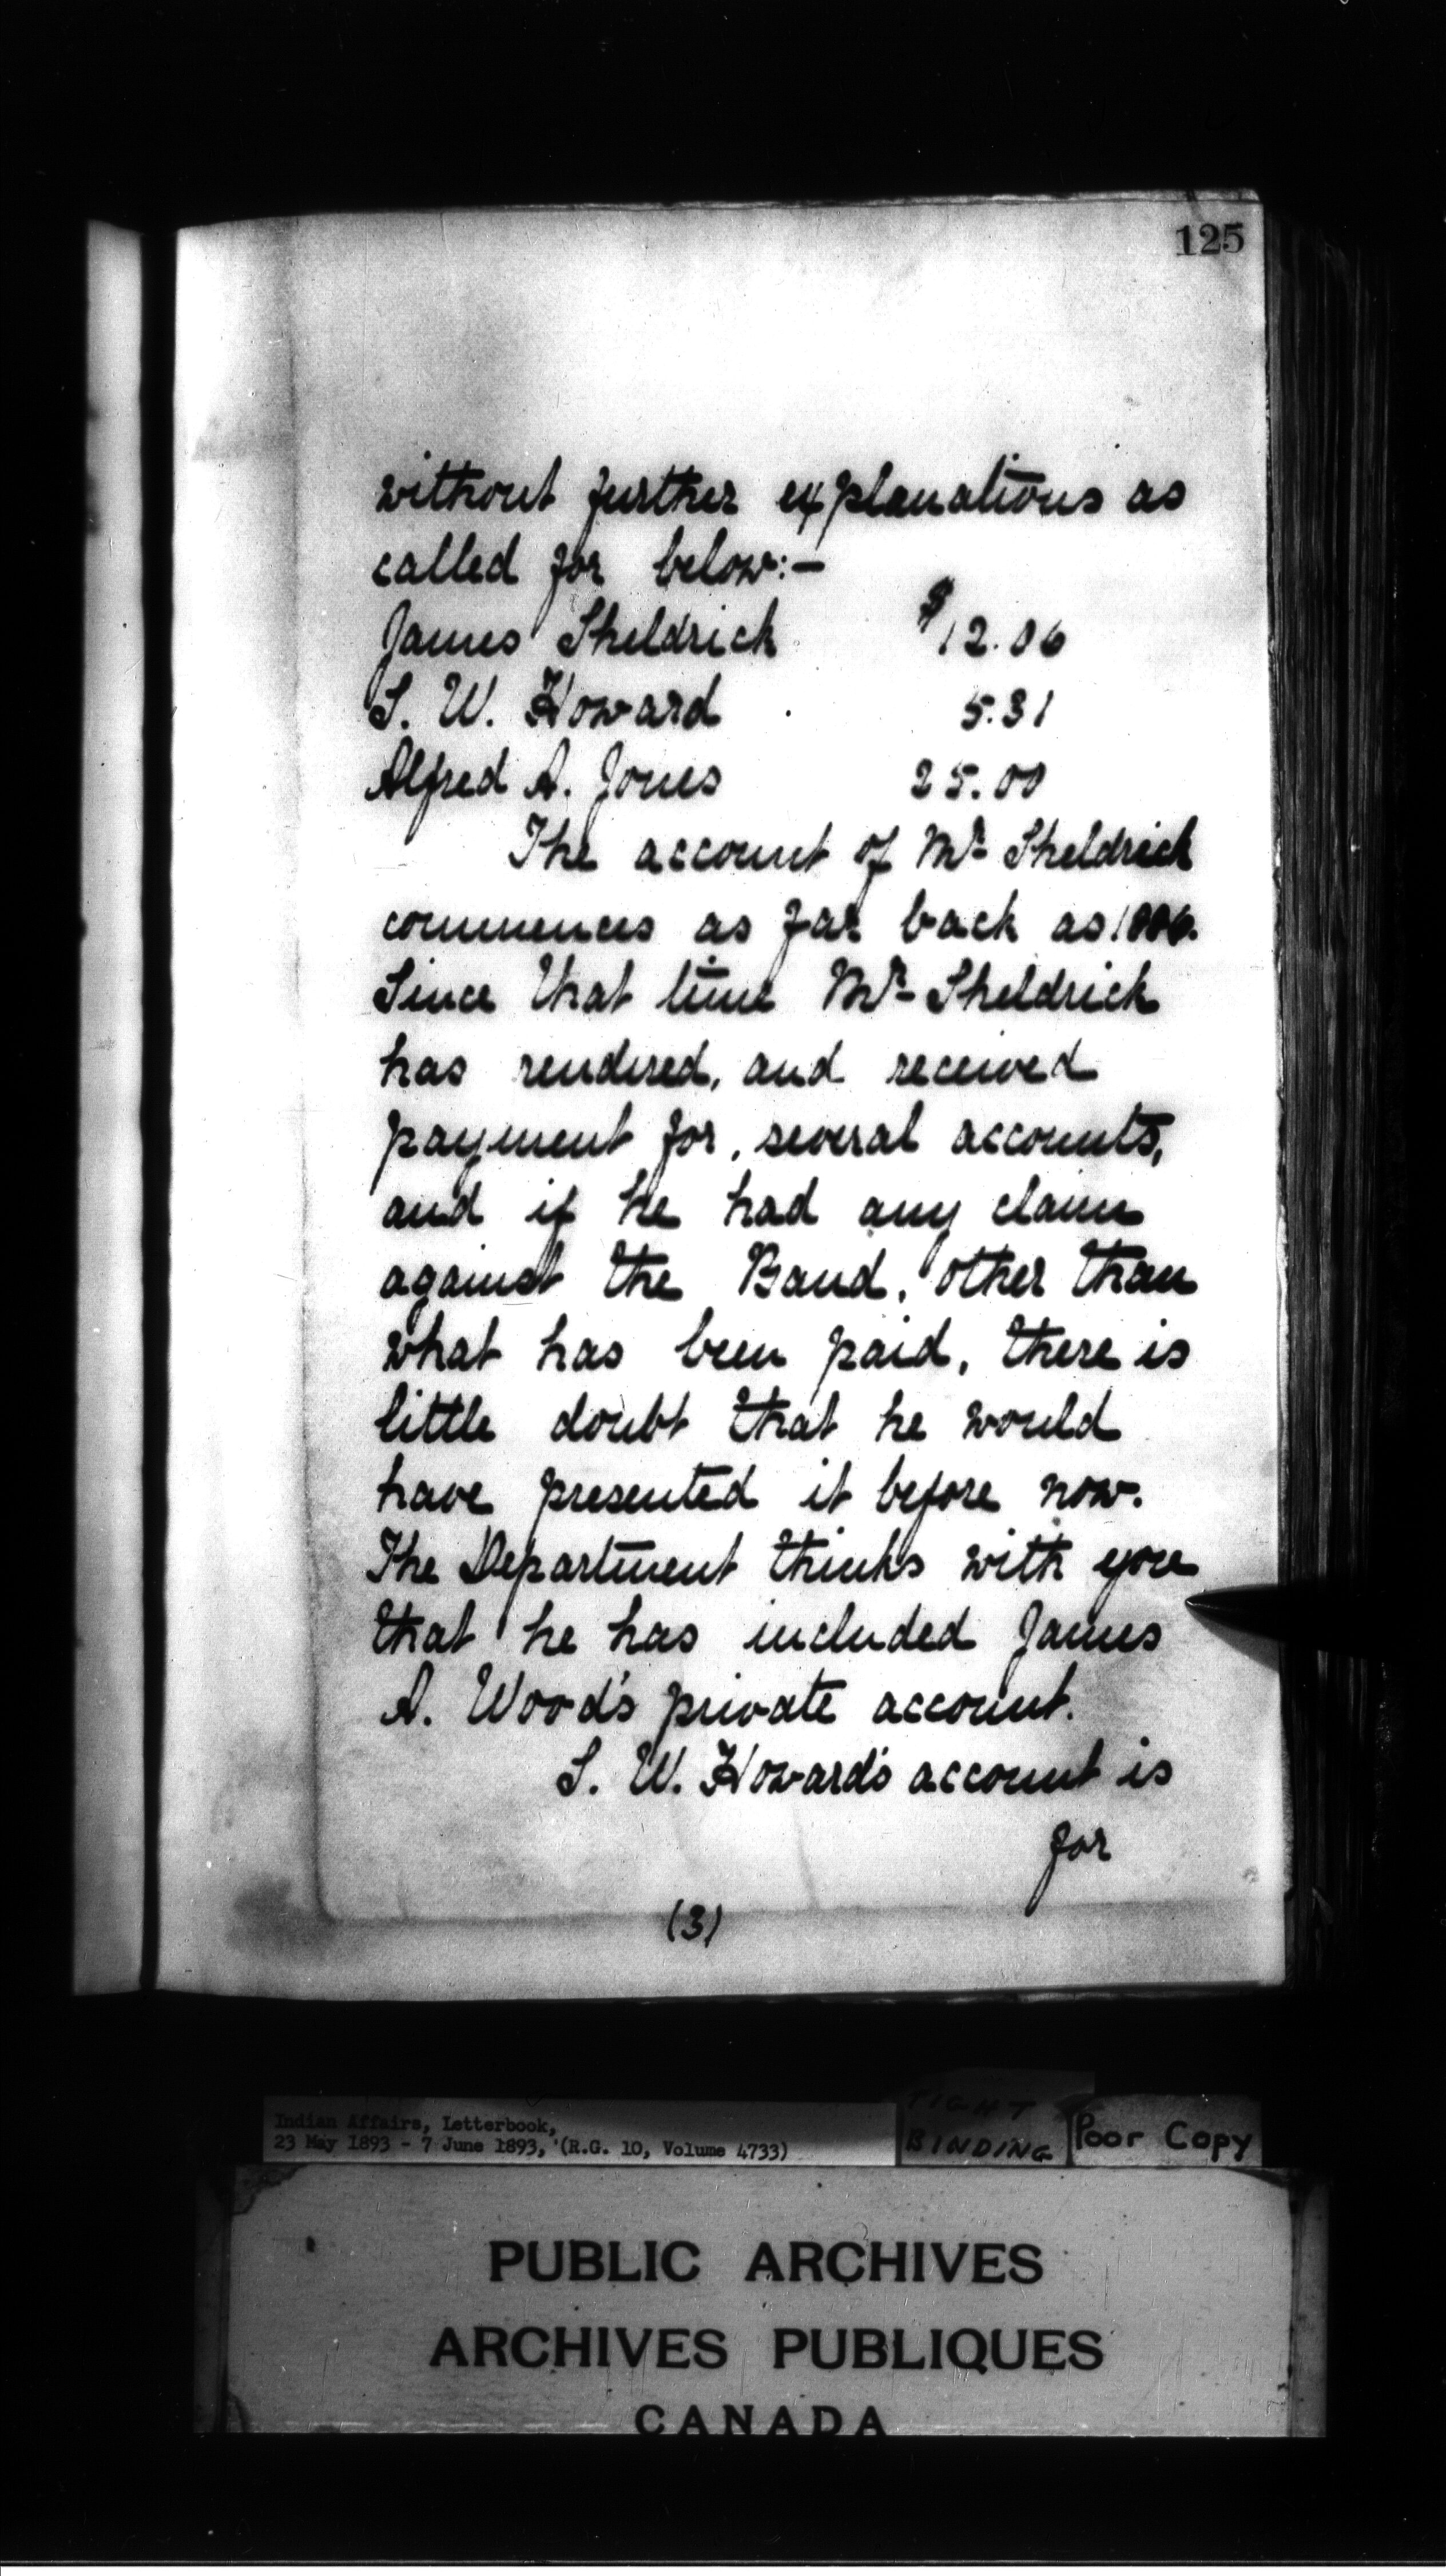 125
without further explanations as
called for below:—
James Sheldrick $12.06
S. W. Howard 5.31
Alfred A. Jones 25.00
The account of Mr. Sheldrick
commences as far back as 1886.
Since that time Mr. Sheldrick
has rendered, and received
payment for, several accounts,
and if he had any claim
against the Band, other than
what has been paid, there is
little doubt that he would
have presented it before now.
The Department thinks with you
that he has included James
A. Wood's private account.
S. W. Howard's account is
for
(3)
Indian Affairs, Letterbook,
23 May 1893 - 7 June 1893, (R.G. 10, Volume 4733)
TIGHT
BINDING
Poor Copy
PUBLIC ARCHIVES
ARCHIVES PUBLIQUES
CANADA